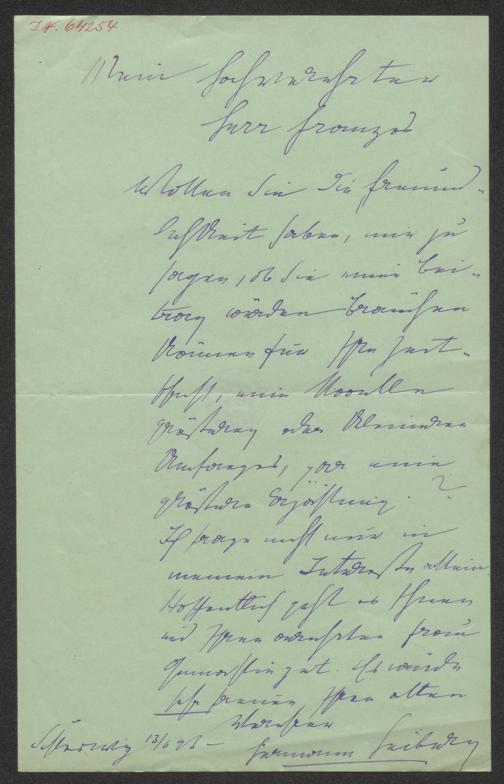 I.N. 64254
Mein hochverehrter
Herr Franzos
Wollen Sie die Freund-
lichkeit haben, mir zu
sagen, ob Sie einen Bei-
trag würden brauchen
können für Ihre Zeit-
schrift, eine Novelle
größeren oder kleineren
Umfanges, gar eine
größere Erzählung?
Ich frage nicht nur in
meinem Interesse allein.
Hoffentlich geht es Ihnen
und Ihrer verehrten Frau
Gemahlin gut. Es würde
sehr freuen Ihren alten
Verehrer
Schleswig 13/6 93 –
Hermann Heiberg